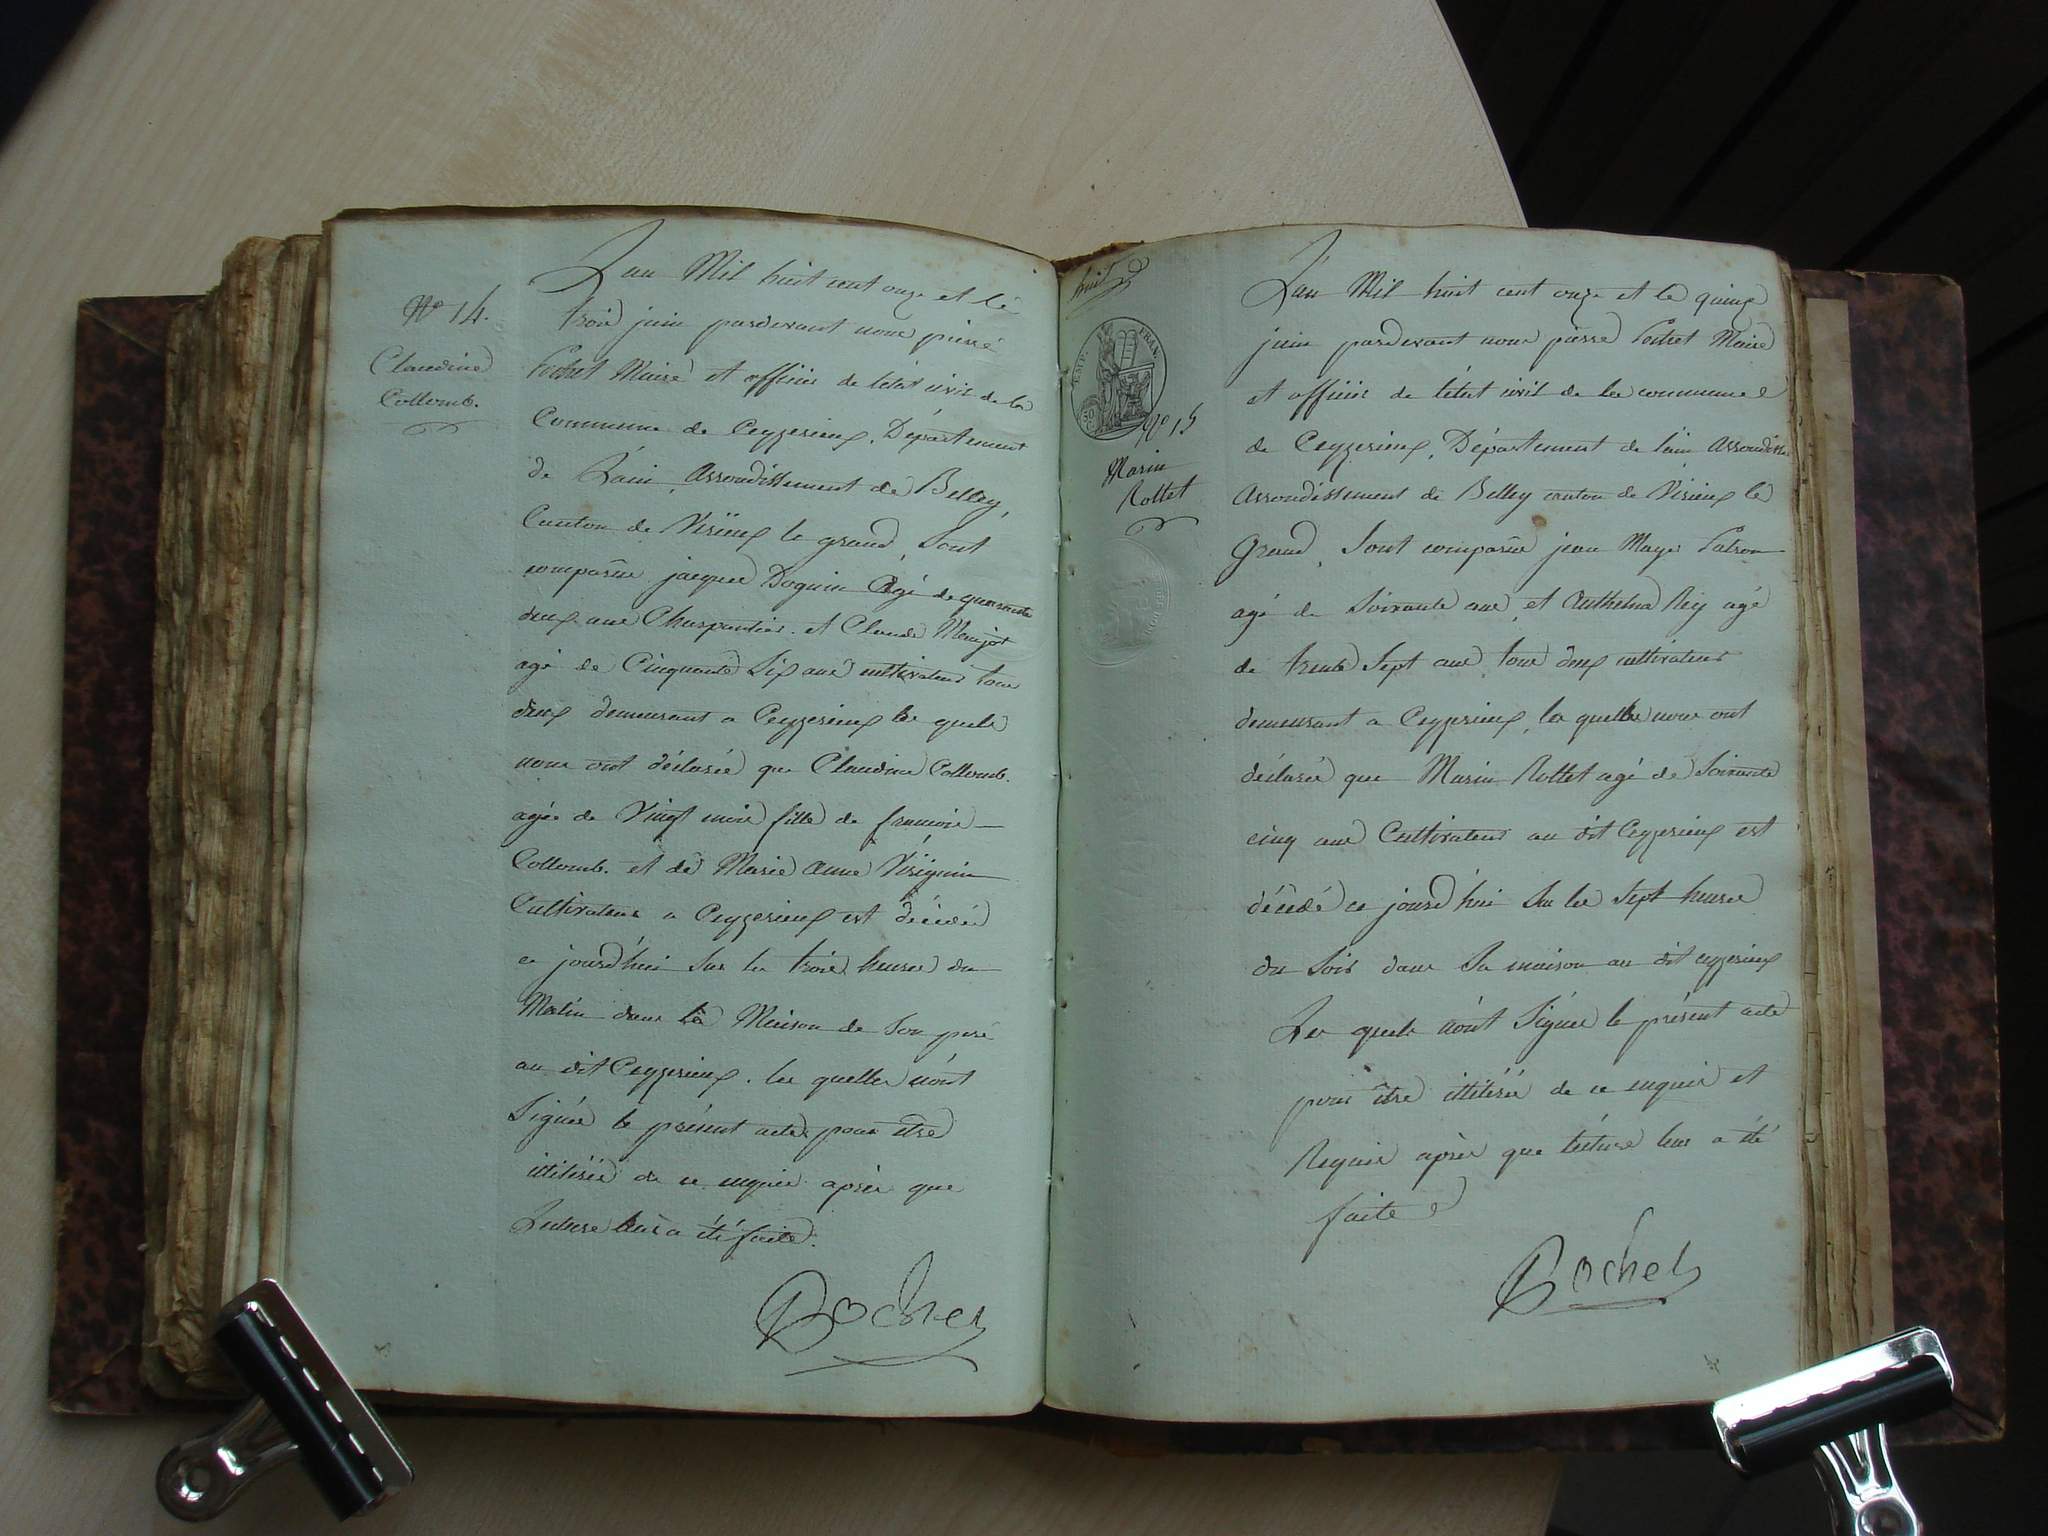 N° 14.
Claudine
Collomb.
L'an Mil huit cent onze et le
trois juin pardevant nous pierre
Maire et officier de l'état civil de la
Commune de Ceyzerieux, Département
de L'ain, Arrondissement de Belley,
Canton de Virieux le grand, Sont
comparus jacques Doguin Agé de quarante
deux ans Charpentier. et Claude
agé de Cinquante Six ans cultivateurs tous
deux demeurant a Ceyzerieux les quels
nous ont déclaré que Claudine Collomb.
agée de Vingt mois fille de francois
Collomb. et de Marie Anne Virignin
Cultivateurs a Ceyzerieux est décédée
ce jourd'hui Sur les trois heures du
Matin dans la Maison de Son pere
au dit Ceyzerieux. les quelles n'ont
Signés le présent acte pour etre
ilitérés de ce enquis après que
Lecture leur a été faite.
Pochet
huit
EMP. FRAN.
50
N° 15
Marin
Rottet
L'an Mil huit cent onze et le quinze
juin pardevant nous pierre Maire
et officier de l'état civil de la commune
de Ceyzerieux, Département de l'ain
Arrondissement de Belley canton de Virieux le
Grand, Sont comparus jean Maye
agé de Soixante ans, et Anthelme Rey agé
de trente Sept ans tous deux cultivateurs
demeurant a Ceyzerieux, les quelles nous ont
déclaré que Marin Rottet agé de Soixante
cinq ans Cultivateur au dit Ceyzerieux est
décédé ce jourd'hui Sur les Sept heures
du Soir dans Sa maison au dit ceyzerieux
Les quels n'ont Signés le présent acte
pour être ilitérés de ce enquis et
Requis après que lecture leur a été
faite
Pochet